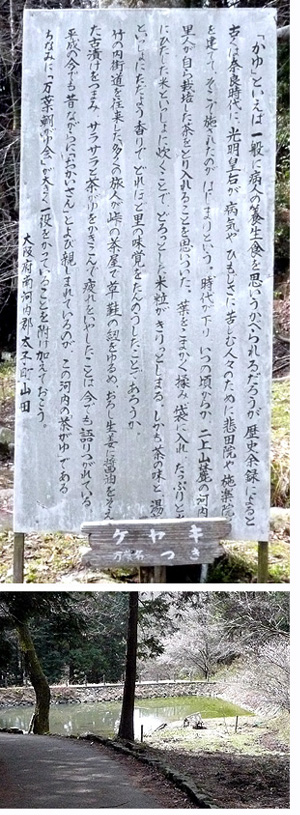 「かゆ」といえば一般に病人の養生食を思いうかべられるだろうが歴史余録によると
古くは奈良時代に、光明皇后が病気やひもじさに苦しむ人々のために悲田院や施薬院
を建て、そこで施されたのがはじまりという。時代が下り、いつの頃からか二上山麓の河内
里人が自ら栽培した茶をとり入れることを思いついた。葉をこまかく揉み袋に入れたっぷりと
にひたした米といっしょに炊くことで、どろっとした米粒がきりっとしまる。しかも茶の味と湯
といっしょにただよう香りで、どれほど里の味覚をたんのうしたことであろうか。
竹の内街道を往来した多くの旅人が峠の茶屋で草鞋の紐をゆるめ、おろし生姜に醤油をそえ
た古漬けをつまみ、サラサラと茶がゆをかきこんで疲れをいやしたことは今でも語りつがれている
平成の今でも昔ながらに「おかいさん」とよび親しまれているのが、この河内の茶がゆである
ちなみに「万葉朝がゆ会」が大きく一役をかっていることを附け加えておこう。
大阪府南河内郡太子町山田
ケヤキ
つき